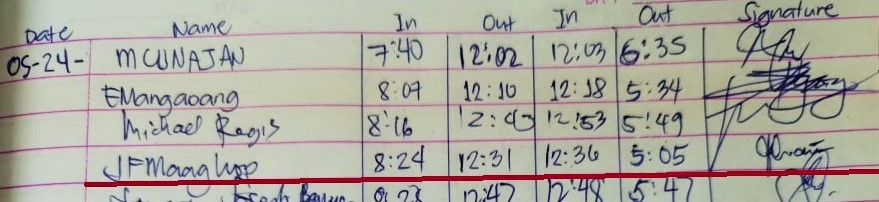 Date Name In Out In Out Signature
05-24- MCUNAJAN 7:40 12:02 12:03 6:35
EMangaoang 8:07 12:10 12:18 5:34
Michael Regis 8:16 12:43 12:53 5:49
JFMaaghop 8:24 12:31 12:36 5:05
12:47 12:48 5:47